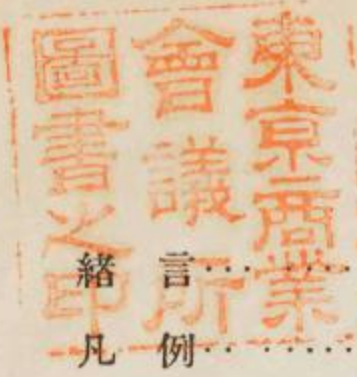 東京商業
會議所
圖書之印
緒言… ……
凡例‥ ……